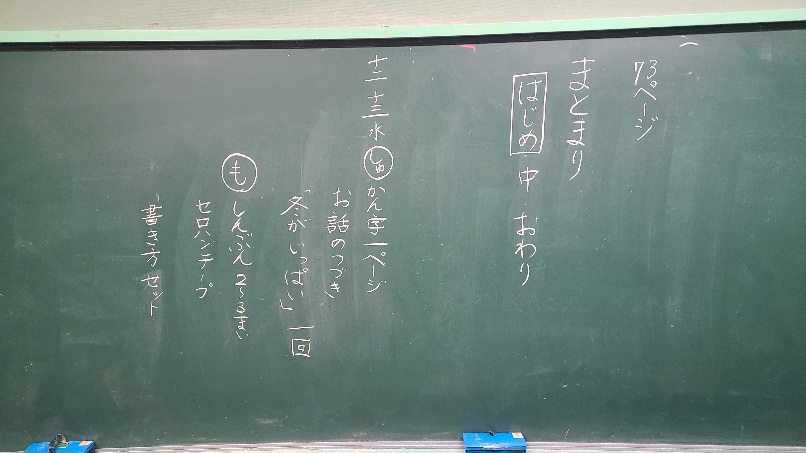 73ページ
まとまり
はじめ 中 おわり
十二 十三 水 しゅ かん字一ページ
お話のつづき
「冬がいっぱい」一回
も しんぶん2~3まい
セロハンテープ
書き方セット